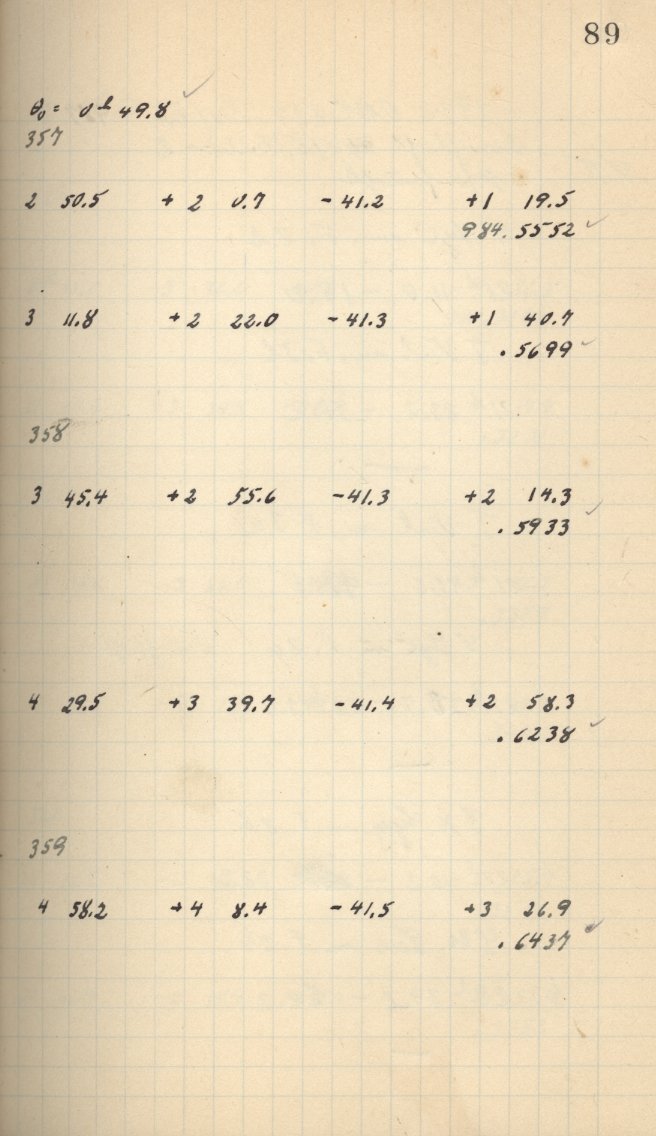 89
θ₀ = 0ʰ 49.8 ✓
357
2 50.5 + 2 0.7 - 41.2 +1 19.5
984.5552 ✓
3 11.8 +2 22.0 -41.3 +1 40.7
.5699 ✓
358
3 45.4 +2 55.6 -41.3 +2 14.3
.5933 ✓
4 29.5 +3 39.7 -41.4 +2 58.3
.6238 ✓
359
4 58.2 +4 8.4 -41.5 +3 26.9
.6437 ✓